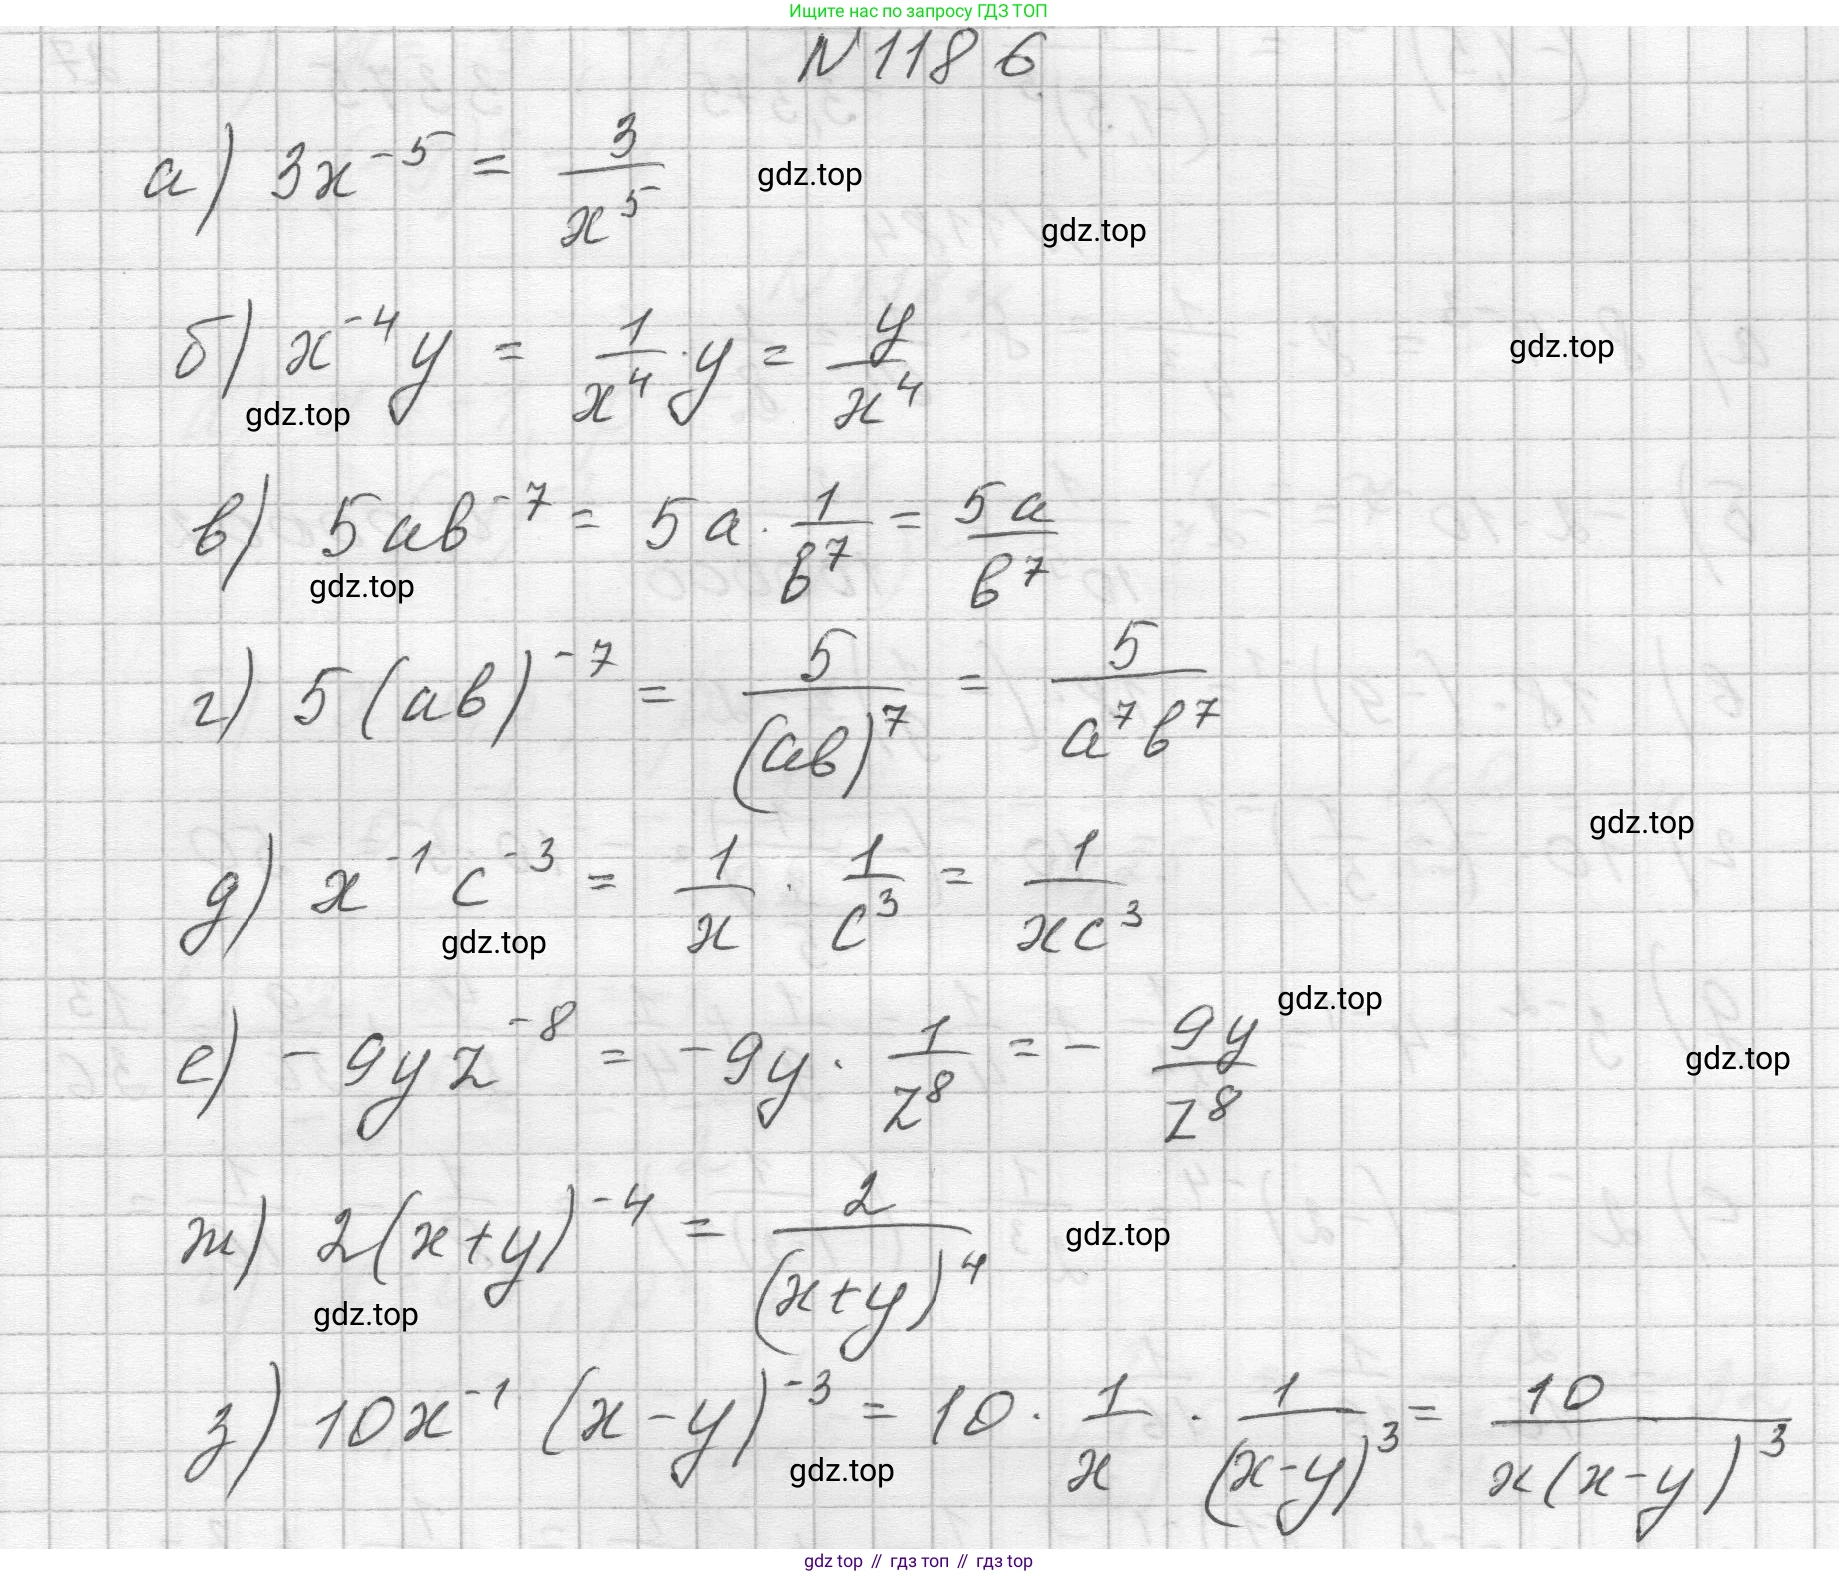 Ищите нас по запросу ГДЗ ТОП
N 1186
а) 3x⁻⁵ = 3/x⁵
gdz.top
gdz.top
б) x⁻⁴y = 1/x⁴ · y = y/x⁴
gdz.top
gdz.top
в) 5ab⁻⁷ = 5a · 1/b⁷ = 5a/b⁷
gdz.top
г) 5(ab)⁻⁷ = 5/(ab)⁷ = 5/a⁷b⁷
gdz.top
д) x⁻¹c⁻³ = 1/x · 1/c³ = 1/xc³
gdz.top
gdz.top
е) -9yz⁻⁸ = -9y · 1/z⁸ = - 9y/z⁸
gdz.top
ж) 2(x+y)⁻⁴ = 2/(x+y)⁴
gdz.top
gdz.top
з) 10x⁻¹(x-y)⁻³ = 10 · 1/x · 1/(x-y)³ = 10/x(x-y)³
gdz.top
gdz top // гдз топ // гдз top